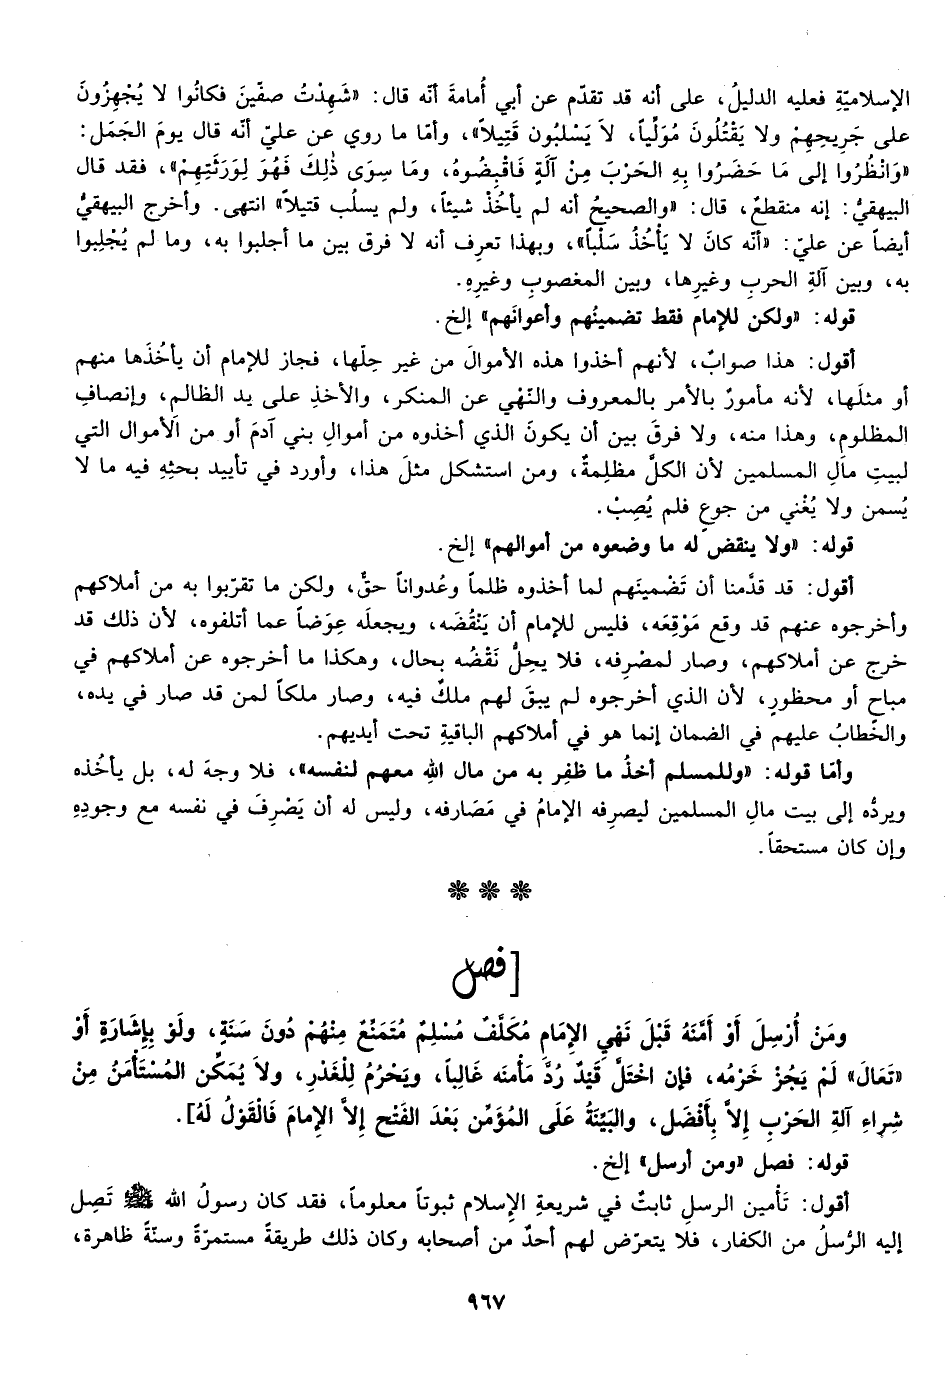 الإسلاميّةِ فعليه الدليلُ، على أنه قد تقدّم عن أبي أُمامةَ أنّه قال: «شَهِدْتُ صفّينَ فكانُوا لا يُجْهِزُونَ
على جَرِيحِهِمْ ولا يَقْتُلُونَ مُوَلِّياً، لاَ يَسْلبُون قَتِيلاً»، وأمّا ما روي عن عليّ أنّه قال يومَ الجَمَل:
«وَانْظُرُوا إلى مَا حَضَرُوا بِهِ الحَرْبَ مِنْ آلَةٍ فَاقْبِضُوهُ، ومَا سِوَى ذٰلِكَ فَهُوَ لِوَرَثَتِهِمْ»، فقد قال
البيهقيُّ: إنه منقطعٌ، قال: «والصحيحُ أنه لم يأخُذْ شيئاً، ولم يسلُب قتيلاً» انتهى. وأخرج البيهقيُّ
أيضاً عن عليّ: «أنّه كانَ لا يَأْخُذُ سَلَباً»، وبهذا تعرِف أنه لا فرق بين ما أجلبوا به، وما لم يُجْلِبوا
به، وبين آلةِ الحربِ وغيرِها، وبين المغصوبِ وغيرِهِ.
قوله: «ولكن للإمام فقط تضمينُهم وأعوانَهم» إلخ.
أقول: هذا صوابٌ، لأنهم أخذوا هذه الأموالَ من غير حِلِّها، فجاز للإمام أن يأخُذَها منهم
أو مثلَها، لأنه مأمورٌ بالأمر بالمعروف والنّهْي عن المنكر، والأخذِ على يد الظالم، وإنصافِ
المظلوم، وهذا منه، ولا فرقَ بين أن يكونَ الذي أخذوه من أموالِ بني آدمَ أو من الأموال التي
لبيتِ مالِ المسلمين لأن الكلَّ مظلِمةٌ، ومن استشكل مثلَ هذا، وأورد في تأييد بحثِهِ فيه ما لا
يُسمن ولا يُغْني من جوعٍ فلم يُصِبْ.
قوله: «ولا ينقض له ما وضعوه من أموالهم» إلخ.
أقول: قد قدَّمنا أن تَضْمينَهم لما أخذوه ظلماً وعُدواناً حقٌّ، ولكن ما تقرّبوا به من أملاكهم
وأخرجوه عنهم قد وقع مَوْقِعَه، فليس للإمام أن يَنْقُضَه، ويجعلَه عِوَضاً عما أتلفوه، لأن ذلك قد
خرج عن أملاكهم، وصار لمصْرِفه، فلا يحِلُّ نَقْضُه بحال، وهكذا ما أخرجوه عن أملاكهم في
مباح أو محظورٍ، لأن الذي أخرجوه لم يبقَ لهم ملكٌ فيه، وصار ملكاً لمن قد صار في يده،
والخّطابُ عليهم في الضمان إنما هو في أملاكهم الباقيةِ تحت أيديهم.
وأمّا قوله: «وللمسلم أخذُ ما ظفِر به من مال اللهِ معهم لنفسه»، فلا وجهَ له، بل يأخُذه
ويردُّه إلى بيت مالِ المسلمين ليصرِفه الإمامُ في مَصَارفه، وليس له أن يَصْرِفَ في نفسه مع وجودِهِ
وإن كان مستحقاً.
❋ ❋ ❋
[فصل
ومَنْ أُرْسِلَ أَوْ أَمَّنَهُ قَبْلَ نَهْيِ الإمَامِ مُكَلَّفٌ مُسْلِمٌ مُتَمَنِّعٌ مِنْهُمْ دُونَ سَنَةٍ، ولَوْ بِإشَارَةٍ أَوْ
«تَعَالَ» لَمْ يَجُزْ خَرْمُه، فإن اخْتَلَّ قَيْدٌ رُدَّ مَأْمنَه غَالِباً، ويَحْرُمُ لِلْغَدْرِ، ولاَ يُمَكَّن المُسْتَأْمَنُ مِنْ
شِراءِ آلةِ الحَرْبِ إلاَّ بِأَفْضَل، والبَيِّنَةُ عَلَى المُؤَمِّن بَعْدَ الفَتْحِ إلاَّ الإمامَ فَالْقَوْلُ لَهُ].
قوله: فصل «ومن أرسل» إلخ.
أقول: تَأْمين الرسلِ ثابتٌ في شريعةِ الإسلام ثبوتاً معلوماً، فقد كان رسولُ الله ﷺ تَصِل
إليه الرُّسلُ من الكفار، فلا يتعرّض لهم أحدٌ من أصحابه وكان ذلك طريقةً مستمرّةً وسنّةً ظاهرة،
٩٦٧